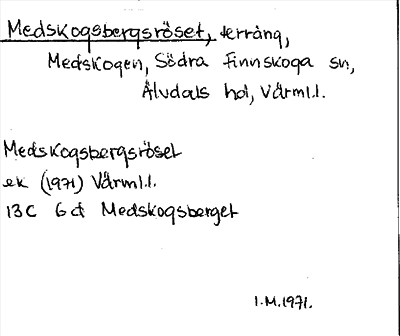 Medskogsbergsröset, terräng,
Medskogen, Södra Finnskoga sn,
Älvdals hd, Värml.l.
Medskogsbergsröset
ek (1971) Värml.l.
13C 6d Medskogsberget
I.M.1971.